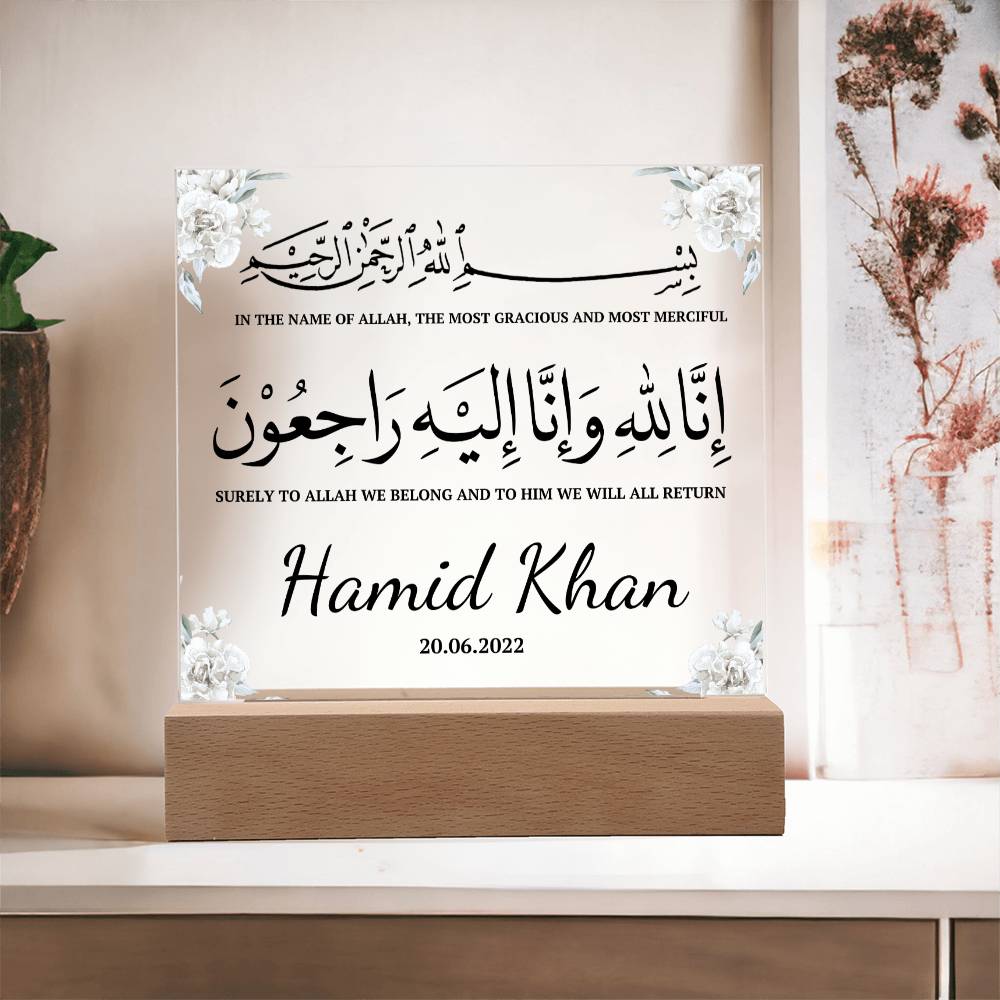 بِسْمِ ٱللهِ ٱلرَّحْمٰنِ ٱلرَّحِيْمِ
IN THE NAME OF ALLAH, THE MOST GRACIOUS AND MOST MERCIFUL
إِنَّا لِلهِ وَإِنَّا إِلَيْهِ رَاجِعُوْنَ
SURELY TO ALLAH WE BELONG AND TO HIM WE WILL ALL RETURN
Hamid Khan
20.06.2022